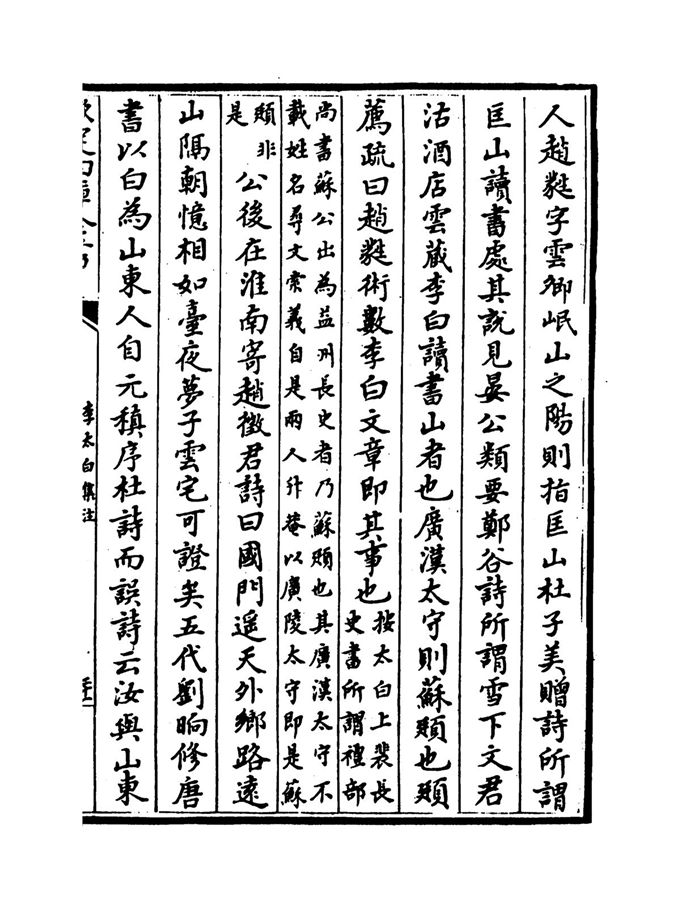 人趙蕤字雲卿岷山之陽則指匡山杜子美贈詩所謂
匡山讀書處其說見晏公類要鄭谷詩所謂雪下文君
沽酒店雲蔵李白讀書山者也廣漢太守則蘇頲也頲
薦疏曰趙蕤術數李白文章即其事也按太白上裴長
史書所謂禮部
尚書蘇公出為益州長史者乃蘇頲也其廣漢太守不
載姓名尋文索義自是兩人升菴以廣陵太守即是蘇
頲非
是公後在淮南寄趙徴君詩曰國門遥天外鄉路遠
山隔朝憶相如臺夜夢子雲宅可證矣五代劉昫修唐
書以白為山東人自元稹序杜詩而誤詩云汝與山東
李太白集注